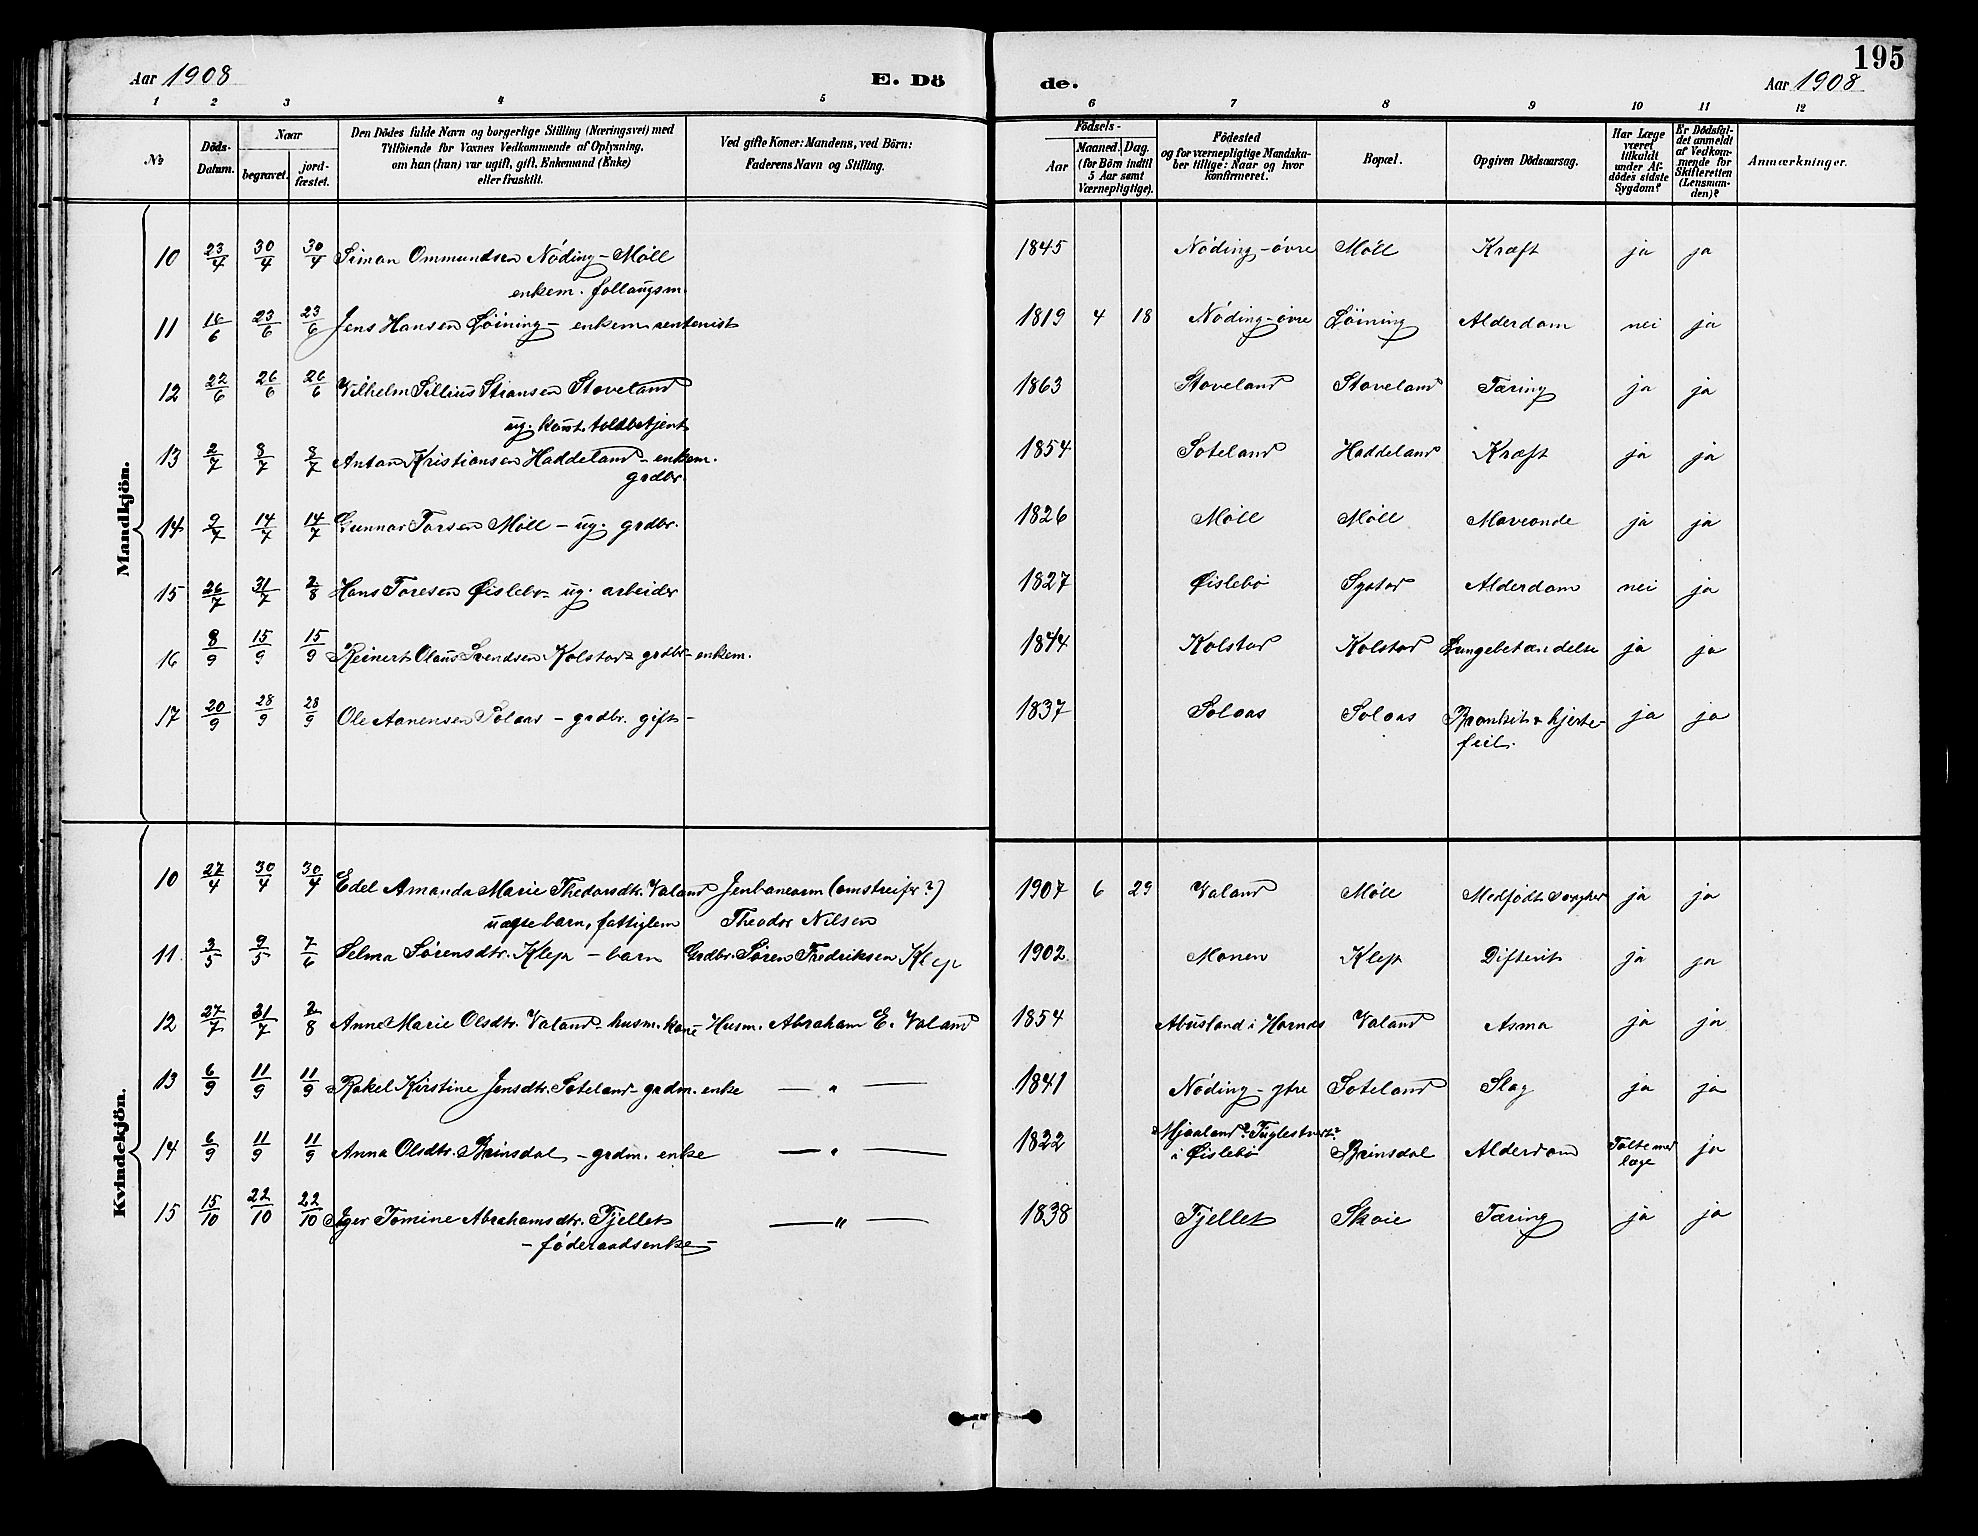 195
Aar 1908 E. Dö de. Aar 1908
1 2 3 4 5 6 7 8 9 10 11 12
№ Döds-Datum. Naar begravet. jord-fæstet. Den Dödes fulde Navn og borgerlige Stilling (Næringsvei) med Tilföiende for Voxnes Vedkommende af Oplysning, om han (hun) var ugift, gift, Enkemand (Enke) eller fraskilt. Ved gifte Koner: Mandens, ved Börn: Faderens Navn og Stilling. Födsels- Aar Maaned. Dag. (for Börn indtil 5 Aar samt Værnepligtige). Födested og for værnepligtige Mandskaber tillige: Naar og hvor konfirmeret. Bopæl. Opgiven Dödsaarsag. Har Læge været tilkaldt under Afdödes sidste Sygdom? Er Dödsfaldet anmeldt af Vedkommende for Skifteretten (Lensmanden)? Anmærkninger.
Mandkjön.
10 23/4 30/4 30/4 Simon Ommundsen Nöding - Möll 1845 Nöding - övre Möll Kræft ja ja
enkem.
11 16/6 23/6 23/6 Jens Hansen Löining - enkem. rentenist 1819 4 18 Nöding - övre Löining Alderdom nei ja
12 22/6 26/6 26/6 Vilhelm Stiansen Stoveland 1863 Stoveland Stoveland Tæring ja ja
ug. konst. toldbetjent
13 2/7 8/7 8/7 Anton Kristiansen Haddeland - enkem. 1854 Soteland Haddeland Kræft ja ja
grdbr.
14 9/7 14/7 14/7 Gunnar Torsen Möll - ug. grdbr. 1826 Möll Möll Maveonde ja ja
15 26/7 31/7 2/8 Hans Toresen Øislebø - ug. arbeider 1827 Øislebö Systad Alderdom nei ja
16 8/9 15/9 15/9 Reinert Olaus Svendsen Kolstad grdbr - enkem. 1844 Kolstad Kolstad Lungebetændelse ja ja
17 20/9 28/9 28/9 Ole Aanensen Solaas - grdbr. gift - 1837 Solaas Solaas Bronkit & hjerte- ja ja
feil.
Kvindekjön.
10 27/4 30/4 30/4 Edel Amanda Marie Thedorsdtr. Valand Jenbanearm (omstreifr?) 1907 6 29 Valand Möll Medfödt ja ja
uægte barn, fattiglem Theodor Nilsen
11. 3/5 9/5 7/6 Selma Sørensdtr. Klep - barn Grdbr. Søren Fredriksen Klep 1902 Monen Klep Difterit ja ja
12 27/7 31/7 2/8 Anne Marie Olsdtr. Valand - husm. kone Husm. Abraham E. Valand 1854 Abusland i Hornes Valand Asma ja ja
13 6/9 11/9 11/9 Rakel Kirstine Jensdtr. Soteland - grdm. enke — " — 1841 Nöding - ytre Soteland Slag ja ja
14 6/9 11/9 11/9 Anna Olsdtr. Brinsdal - grdm. enke — " — 1822 Mjaaland? Fuglestvedt? i Øislebö Brinsdal Alderdom Talte med læge ja
15 15/10 22/10 22/10 Tomine Abrahamsdtr. Fjellet — " — 1838 Fjellet Skoie Tæring ja ja
- föderaadsenke -